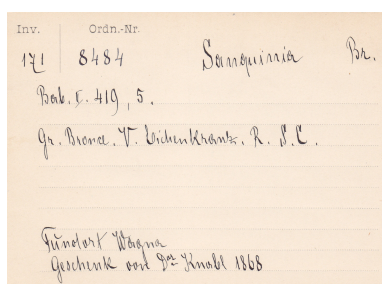 Inv. Ordn.-Nr.
171 8484 Sanquinia Br.
Bab. II. 419, 5.
Gr. Bronce. V. Eichenkranz. R. S. C.
Fundort Wagna
Geschenk von Dr Knabl 1868